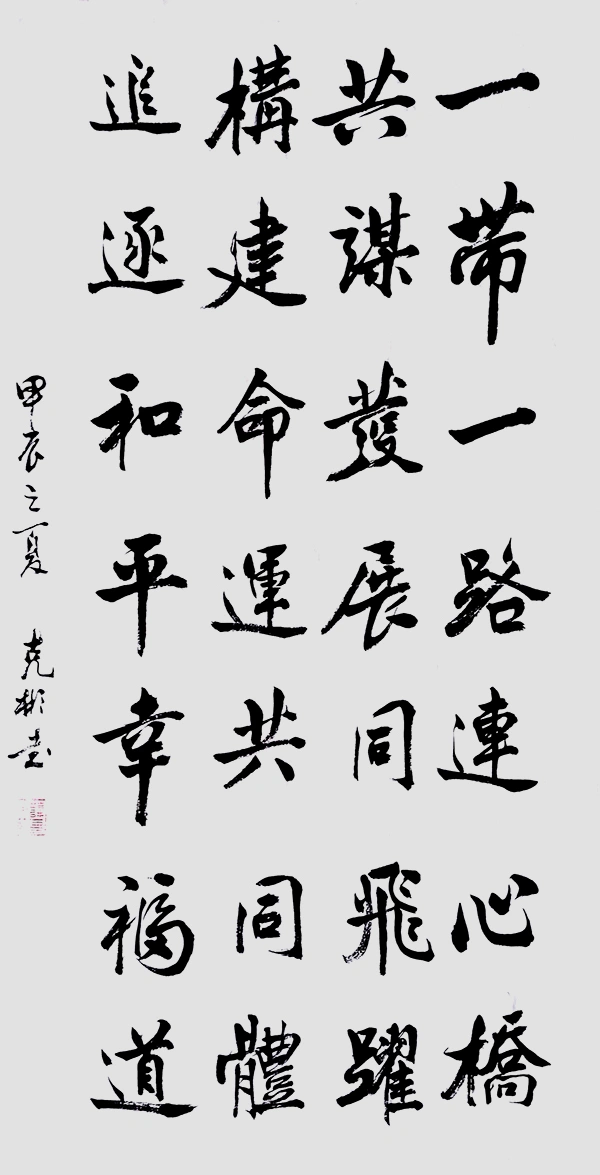 一帶一路連心橋
共謀發展同飛躍
構建命運共同體
追逐和平幸福道
甲辰之夏 克彬书